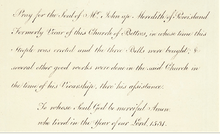 Pray for the Soul of Mr. John ap Meredith of Powisland
Formerly Vicar of this Church of Bettws, in whose time this
Steeple was erected and the three Bells were bought, &
several other good works were done in the said Church in
the time of his Vicarship, thro' his assistance.
To whose Soul God be merciful Amen
who lived in the Year of our Lord 1531.